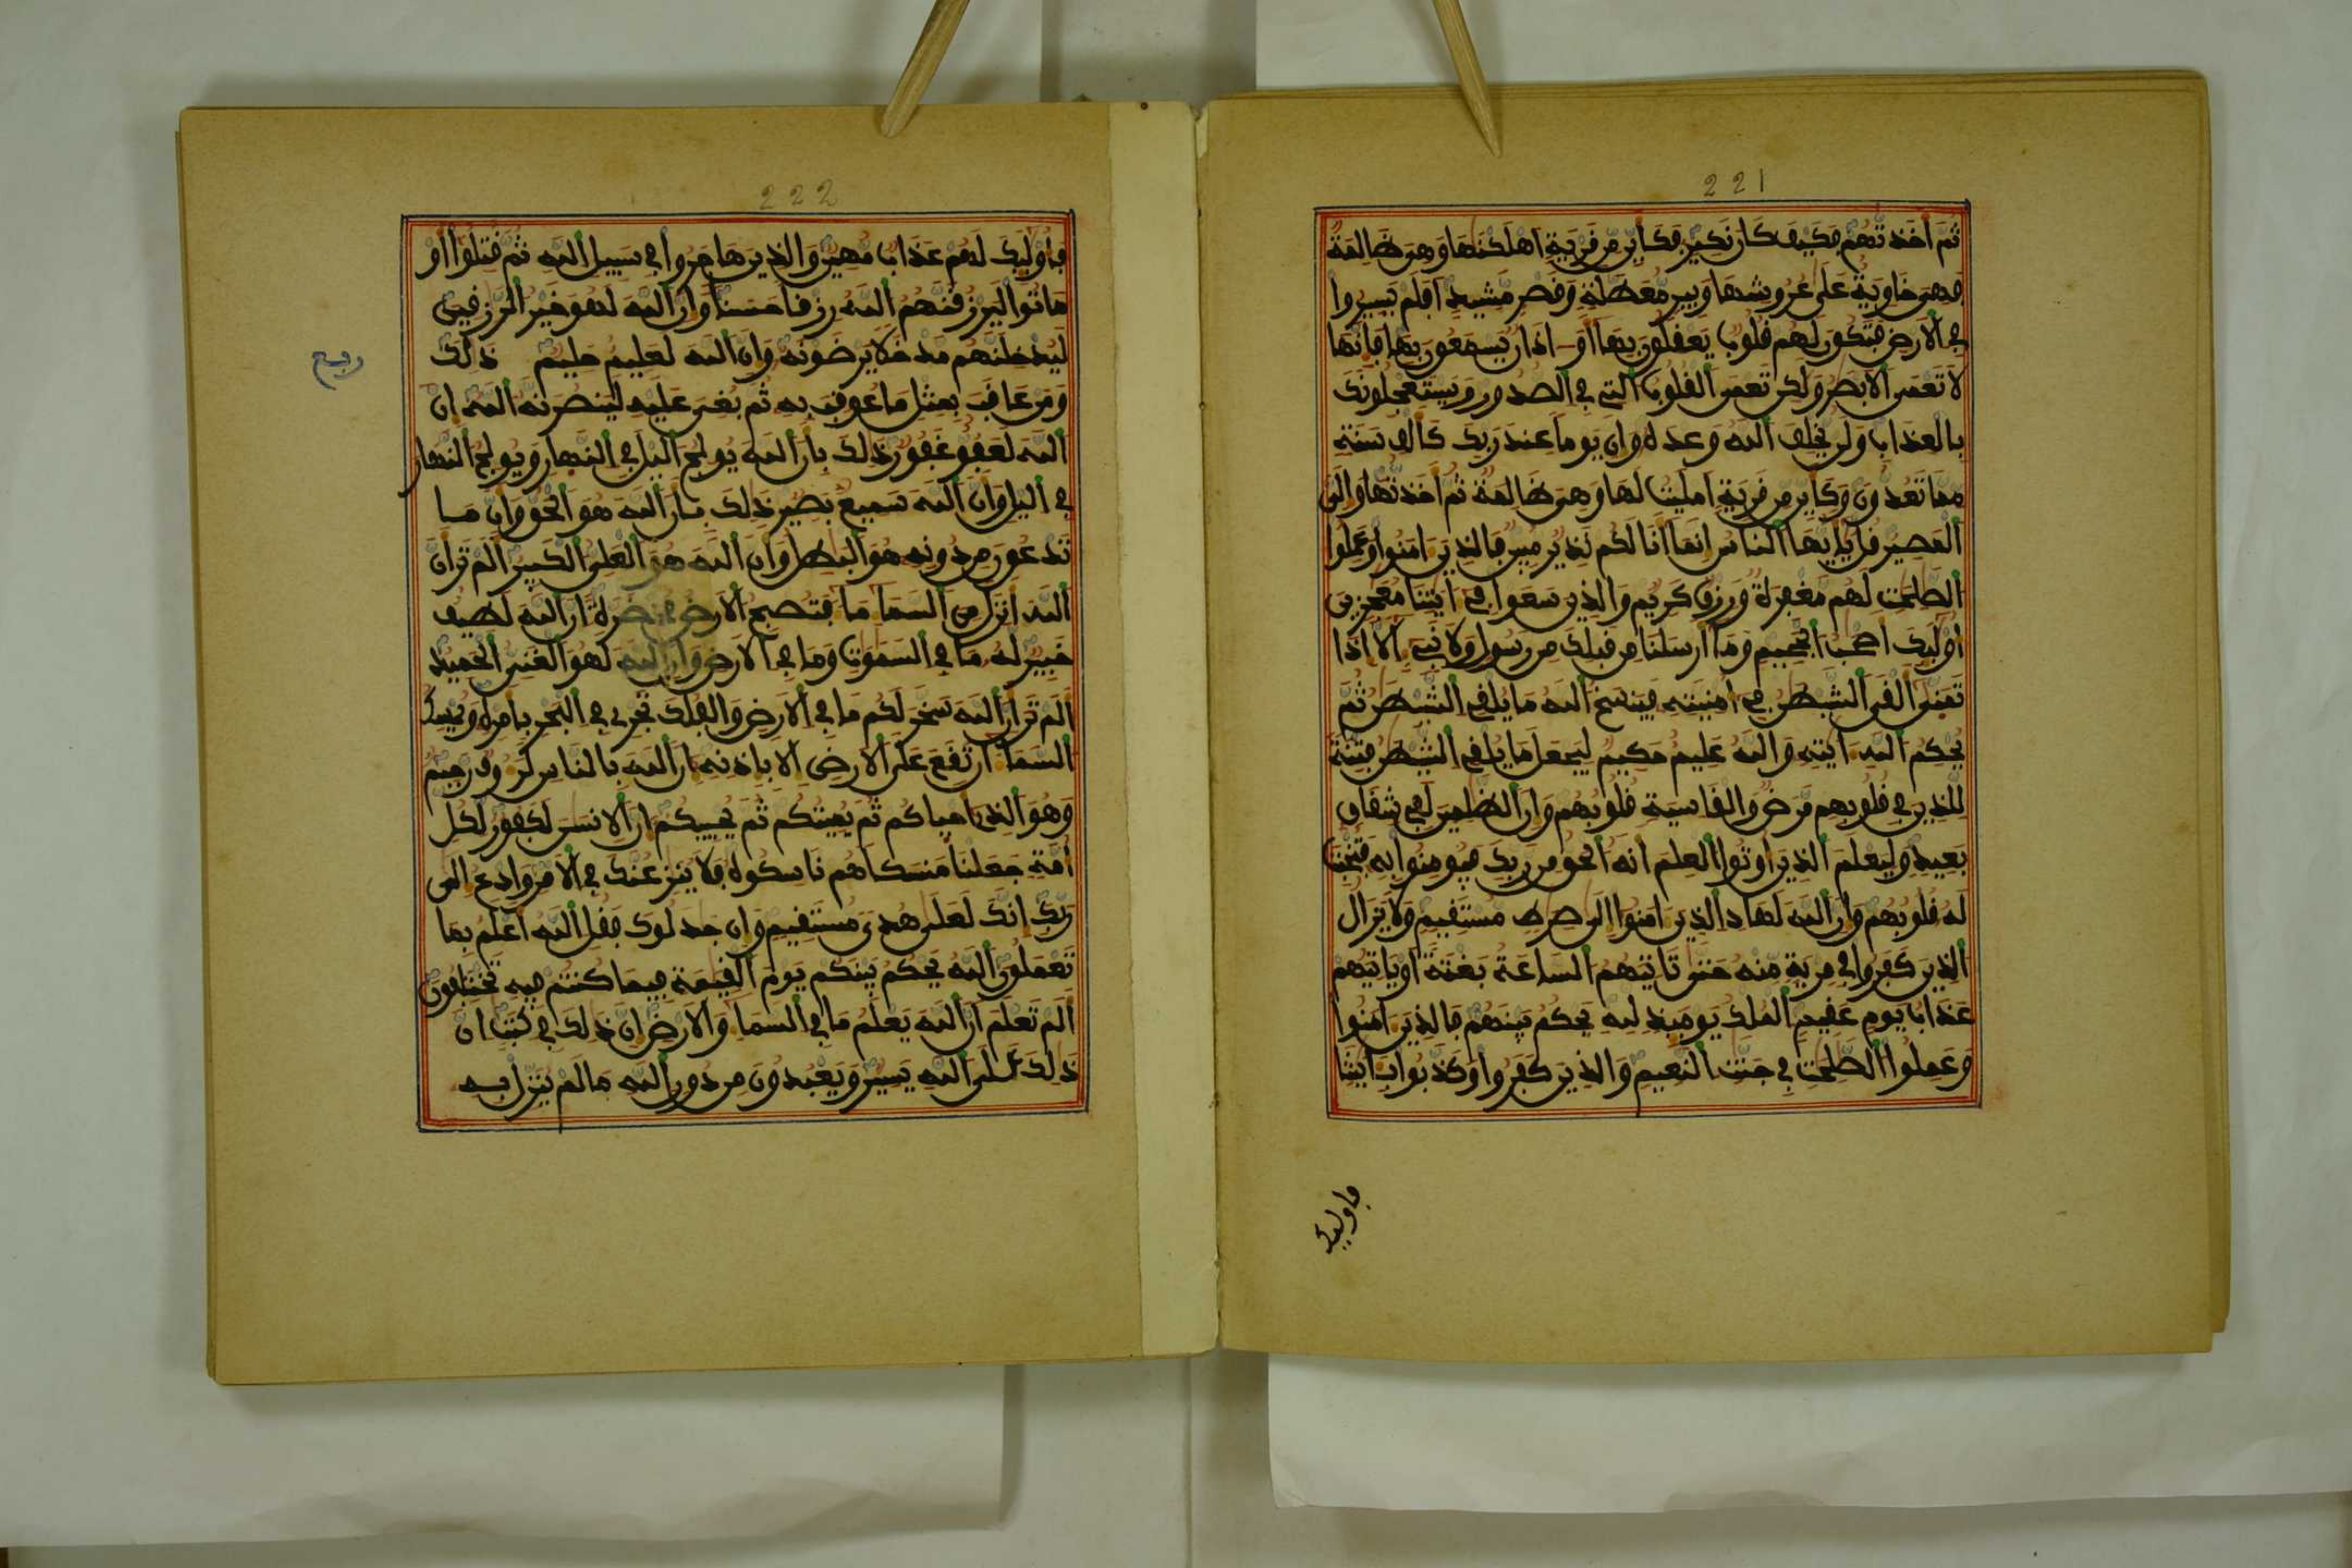 221
ثُمَّ أَخَذتُّهُمْ فَكَيْفَ كَانَ نَكِيرِ فَكَأَيِّن مِّن قَرْيَةٍ اَهْلَكْنَٰهَا وَهِىَ ظَالِمَةٌ
فَهْىَ خَاوِيَةٌ عَلَىٰ عُرُوشِهَا وَبِيرٍ مُّعَطَّلَةٍ وَقَصْرٍ مَّشِيدٍ اَفَلَمْ يَسِيرُوا
فِى الَارْضِ فَتَكُونَ لَهُمْ قُلُوبٌ يَعْقِلُونَ بِهَا أَوَ اذَانٌ يَسْمَعُونَ بِهَا فَإِنَّهَا
لَا تَعْمَى الَابْصَٰرُ وَلَٰكِن تَعْمَى الْقُلُوبُ الَّتِى فِى الصُّدُورِ وَيَسْتَعْجِلُونَكَ
بِالْعَذَابِ وَلَنْ يُّخْلِفَ اللَّهُ وَعْدَهُ وَإِنَّ يَوْماً عِندَ رَبِّكَ كَأَلْفِ سَنَةٍ
مِّمَّا تَعُدُّونَ وَكَأَيِّن مِّن قَرْيَةٍ اَمْلَيْتُ لَهَا وَهِىَ ظَالِمَةٌ ثُمَّ أَخَذتُّهَا وَإِلَىَّ
الْمَصِيرُ قُلْ يَٰأَيُّهَا النَّاسُ إِنَّمَا أَنَا لَكُمْ نَذِيرٌ مُّبِينٌ فَالذِينَ ءَامَنُوا وَعَمِلُوا
الصَّٰلِحَٰتِ لَهُم مَّغْفِرَةٌ وَرِزْقٌ كَرِيمٌ وَالذِينَ سَعَوْا فِى ءَايَٰتِنَا مُعَٰجِزِينَ
أُوْلَٰئِكَ أَصْحَٰبُ الْجَحِيمِ وَمَا أَرْسَلْنَا مِن قَبْلِكَ مِن رَّسُولٍ وَلَا نَبِىءٍ اِلَّا إِذَا
تَمَنَّىٰ أَلْقَى الشَّيْطَٰنُ فِى أُمْنِيَّتِهِ فَيَنسَخُ اللَّهُ مَا يُلْقِى الشَّيْطَٰنُ ثُمَّ
يُحْكِمُ اللَّهُ ءَايَٰتِهِ وَاللَّهُ عَلِيمٌ حَكِيمٌ لِّيَجْعَلَ مَا يُلْقِى الشَّيْطَٰنُ فِتْنَةً
لِّلذِينَ فِى قُلُوبِهِم مَّرَضٌ وَالْقَاسِيَةِ قُلُوبُهُمْ وَإِنَّ الظَّٰلِمِينَ لَفِى شِقَاقٍ
بَعِيدٍ وَلِيَعْلَمَ الذِينَ أُوتُوا الْعِلْمَ أَنَّهُ الْحَقُّ مِن رَّبِّكَ فَيُومِنُوا بِهِ فَتُخْبِتَ
لَهُ قُلُوبُهُمْ وَإِنَّ اللَّهَ لَهَادِ الذِينَ ءَامَنُوا إِلَىٰ صِرَٰطٍ مُّسْتَقِيمٍ وَلَا يَزَالُ
الذِينَ كَفَرُوا فِى مِرْيَةٍ مِّنْهُ حَتَّىٰ تَاتِيَهُمُ السَّاعَةُ بَغْتَةً اَوْ يَاتِيَهُمْ
عَذَابُ يَوْمٍ عَقِيمٍ الْمُلْكُ يَوْمَئِذٍ لِّلهِ يَحْكُمُ بَيْنَهُمْ فَالذِينَ ءَامَنُوا
وَعَمِلُوا الصَّٰلِحَٰتِ فِى جَنَّٰتِ النَّعِيمِ وَالذِينَ كَفَرُوا وَكَذَّبُوا بِـَٔايَٰتِنَا
فأوليك
222
فَأُوْلَٰئِكَ لَهُمْ عَذَابٌ مُّهِينٌ وَالذِينَ هَاجَرُوا فِى سَبِيلِ اللَّهِ ثُمَّ قُتِلُوا أَوْ
مَاتُوا لَيَرْزُقَنَّهُمُ اللَّهُ رِزْقاً حَسَناً وَإِنَّ اللَّهَ لَهُوَ خَيْرُ الرَّٰزِقِينَ
لَيُدْخِلَنَّهُم مَّدْخَلًا يَرْضَوْنَهُ وَإِنَّ اللَّهَ لَعَلِيمٌ حَلِيمٌ ذَٰلِكَ
ربع
وَمَنْ عَاقَبَ بِمِثْلِ مَا عُوقِبَ بِهِ ثُمَّ بُغِىَ عَلَيْهِ لَيَنصُرَنَّهُ اللَّهُ إِنَّ
اللَّهَ لَعَفُوٌّ غَفُورٌ ذَٰلِكَ بِأَنَّ اللَّهَ يُولِجُ الَّيْلَ فِى النَّهَارِ وَيُولِجُ النَّهَارَ
فِى الَّيْلِ وَأَنَّ اللَّهَ سَمِيعٌ بَصِيرٌ ذَٰلِكَ بِأَنَّ اللَّهَ هُوَ الْحَقُّ وَأَنَّ مَا
تَدْعُونَ مِن دُونِهِ هُوَ الْبَٰطِلُ وَأَنَّ اللَّهَ هُوَ الْعَلِىُّ الْكَبِيرُ أَلَمْ تَرَ أَنَّ
اللَّهَ أَنزَلَ مِنَ السَّمَاءِ مَاءً فَتُصْبِحُ الَارْضُ مُخْضَرَّةً اِنَّ اللَّهَ لَطِيفٌ
خَبِيرٌ لَّهُ مَا فِى السَّمَٰوَٰتِ وَمَا فِى الَارْضِ وَإِنَّ اللَّهَ لَهُوَ الْغَنِىُّ الْحَمِيدُ
أَلَمْ تَرَ أَنَّ اللَّهَ سَخَّرَ لَكُم مَّا فِى الَارْضِ وَالْفُلْكَ تَجْرِى فِى الْبَحْرِ بِأَمْرِهِ وَيُمْسِكُ
السَّمَاءَ أَن تَقَعَ عَلَى الَارْضِ إِلَّا بِإِذْنِهِ إِنَّ اللَّهَ بِالنَّاسِ لَرَءُوفٌ رَّحِيمٌ
وَهُوَ الذِى أَحْيَاكُمْ ثُمَّ يُمِيتُكُمْ ثُمَّ يُحْيِيكُمْ إِنَّ الِانسَٰنَ لَكَفُورٌ لِّكُلِّ
أُمَّةٍ جَعَلْنَا مَنسَكاً هُمْ نَاسِكُوهُ فَلَا يُنَٰزِعُنَّكَ فِى الَامْرِ وَادْعُ إِلَىٰ
رَبِّكَ إِنَّكَ لَعَلَىٰ هُدًى مُّسْتَقِيمٍ وَإِن جَٰدَلُوكَ فَقُلِ اللَّهُ أَعْلَمُ بِمَا
تَعْمَلُونَ اللَّهُ يَحْكُمُ بَيْنَكُمْ يَوْمَ الْقِيَٰمَةِ فِيمَا كُنتُمْ فِيهِ تَخْتَلِفُونَ
أَلَمْ تَعْلَمَ اَنَّ اللَّهَ يَعْلَمُ مَا فِى السَّمَاءِ وَالَارْضِ إِنَّ ذَٰلِكَ فِى كِتَٰبٍ اِنَّ
ذَٰلِكَ عَلَى اللَّهِ يَسِيرٌ وَيَعْبُدُونَ مِن دُونِ اللَّهِ مَا لَمْ يُنَزِّلْ بِهِ